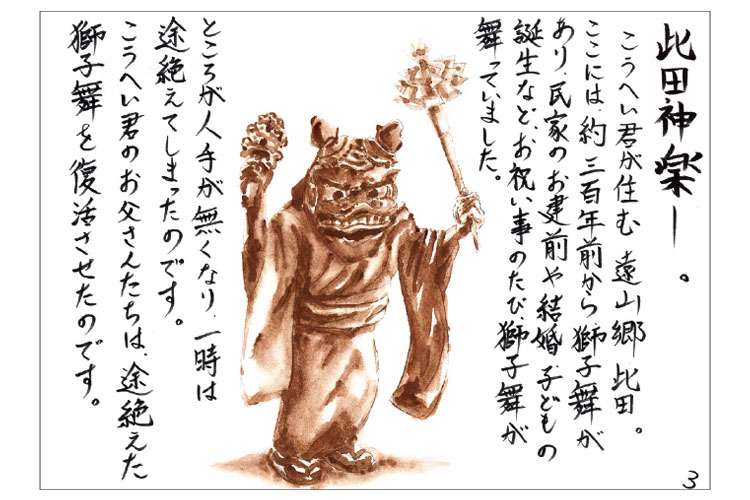 此田神楽ー。
こうへい君が住む 遠山郷 此田。
ここには、約 三百年前から 獅子舞が
あり、民家のお建前や結婚、子どもの
誕生など、お祝い事のたび、獅子舞が
舞っていました。
ところが人手が無くなり、一時は
途絶えてしまったのです。
こうへい君のお父さんたちは、途絶えた
獅子舞を復活させたのです。
3